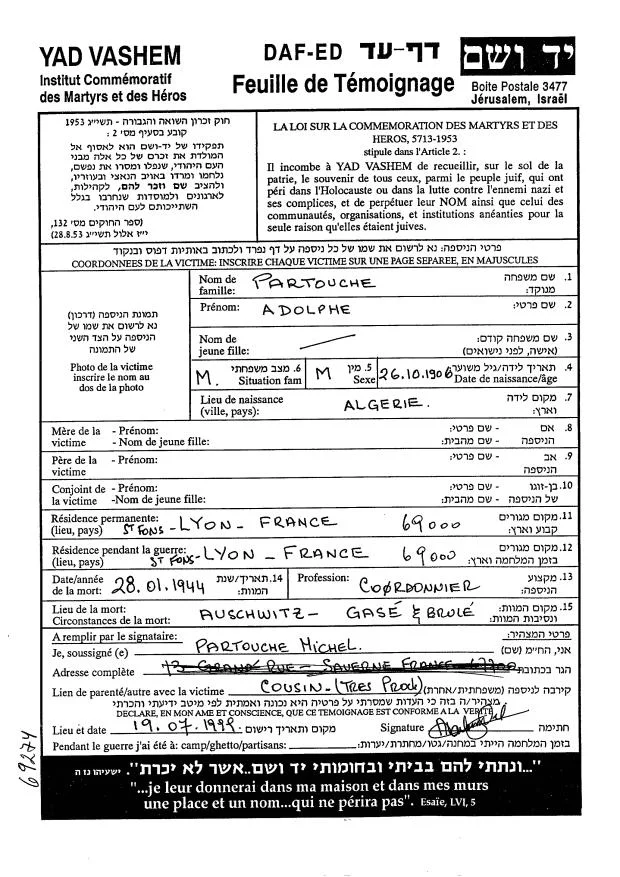 YAD VASHEM
Institut Commémoratif
des Martyrs et des Héros
DAF-ED דף-עד
Feuille de Témoignage
יד ושם
Boite Postale 3477
Jérusalem, Israël
חוק זכרון השואה והגבורה - תשי״ג 1953
קובע בסעיף מס׳ 2 :
תפקידו של יד-ושם הוא לאסוף אל
המולדת את זכרם של כל אלה מבני
העם היהודי, שנפלו ומסרו את נפשם,
נלחמו ומרדו באויב הנאצי ובעוזריו,
ולהציב שם וזכר להם, לקהילות,
לארגונים ולמוסדות שנחרבו בגלל
השתייכותם לעם היהודי.
(ספר החוקים מס׳ 132,
י״ז אלול תשי״ג 28.8.53)
LA LOI SUR LA COMMEMORATION DES MARTYRS ET DES
HEROS, 5713-1953
stipule dans l'Article 2. :
Il incombe à YAD VASHEM de recueillir, sur le sol de la
patrie, le souvenir de tous ceux, parmi le peuple juif, qui ont
péri dans l'Holocauste ou dans la lutte contre l'ennemi nazi et
ses complices, et de perpétuer leur NOM ainsi que celui des
communautés, organisations, et institutions anéanties pour la
seule raison qu'elles étaient juives.
פרטי הניספה: נא לרשום את שמו של כל ניספה על דף נפרד ולכתוב באותיות דפוס ובנקוד
COORDONNEES DE LA VICTIME: INSCRIRE CHAQUE VICTIME SUR UNE PAGE SEPAREE, EN MAJUSCULES
תמונת הניספה (דרכון)
נא לרשום את שמו של
הניספה על הצד השני
של התמונה
Photo de la victime
inscrire le nom au
dos de la photo
Nom de famille: PARTOUCHE 1. שם משפחה מנוקד:
Prénom: ADOLPHE 2. שם פרטי:
Nom de jeune fille: 3. שם משפחה קודם: (אישה, לפני נישואים)
M. 6. מצב משפחתי Situation fam M 5. מין Sexe 26.10.1906 4. תאריך לידה/גיל משוער Date de naissance/âge
Lieu de naissance (ville, pays): ALGERIE. 7. מקום לידה וארץ:
Mère de la victime - Prénom: - שם פרטי: 8. אם הניספה
- Nom de jeune fille: - שם מהבית:
Père de la victime - Prénom: - שם פרטי: 9. אב הניספה
Conjoint de la victime - Prénom: - שם פרטי: 10. בן-זוגו של הניספה
-Nom de jeune fille: - שם מהבית:
Résidence permanente: (lieu, pays) ST FONS - LYON - FRANCE 69000 11. מקום מגורים קבוע וארץ:
Résidence pendant la guerre: (lieu, pays) ST FONS - LYON - FRANCE 69000 12. מקום מגורים בזמן המלחמה וארץ:
Date/année de la mort: 28.01.1944 14. תאריך/שנת המוות: Profession: COORDONNIER 13. מקצוע הניספה:
Lieu de la mort: Circonstances de la mort: AUSCHWITZ - GASÉ & BRULÉ 15. מקום המוות: ונסיבות המוות:
A remplir par le signataire: פרטי המצהיר:
Je, soussigné (e) PARTOUCHE MICHEL. אני, החיימ (שם)
Adresse complète 73 GRAND RUE - SAVERNE FRANCE 67700 הגר בכתובת
Lien de parenté/autre avec la victime COUSIN - (TRES PROCHE) קירבה לניספה (משפחתית/אחרת)
מצהיר/ה בזה כי העדות שמסרתי על פרטיה היא נכונה ואמתית לפי מיטב ידיעתי והכרתי
DECLARE, EN MON AME ET CONSCIENCE, QUE CE TEMOIGNAGE EST CONFORME A LA VERITE
Lieu et date 19.07.1999 מקום ותאריך רישום Signature חתימה
Pendant le guerre j'ai été à: camp/ghetto/partisans: בזמן המלחמה הייתי במחנה/גטו/מחתרת/יערות:
69274
"...ונתתי להם בביתי ובחומותי יד ושם..אשר לא יכרת". ישעיהו נו ה
"...je leur donnerai dans ma maison et dans mes murs
une place et un nom...qui ne périra pas". Esaïe, LVI, 5